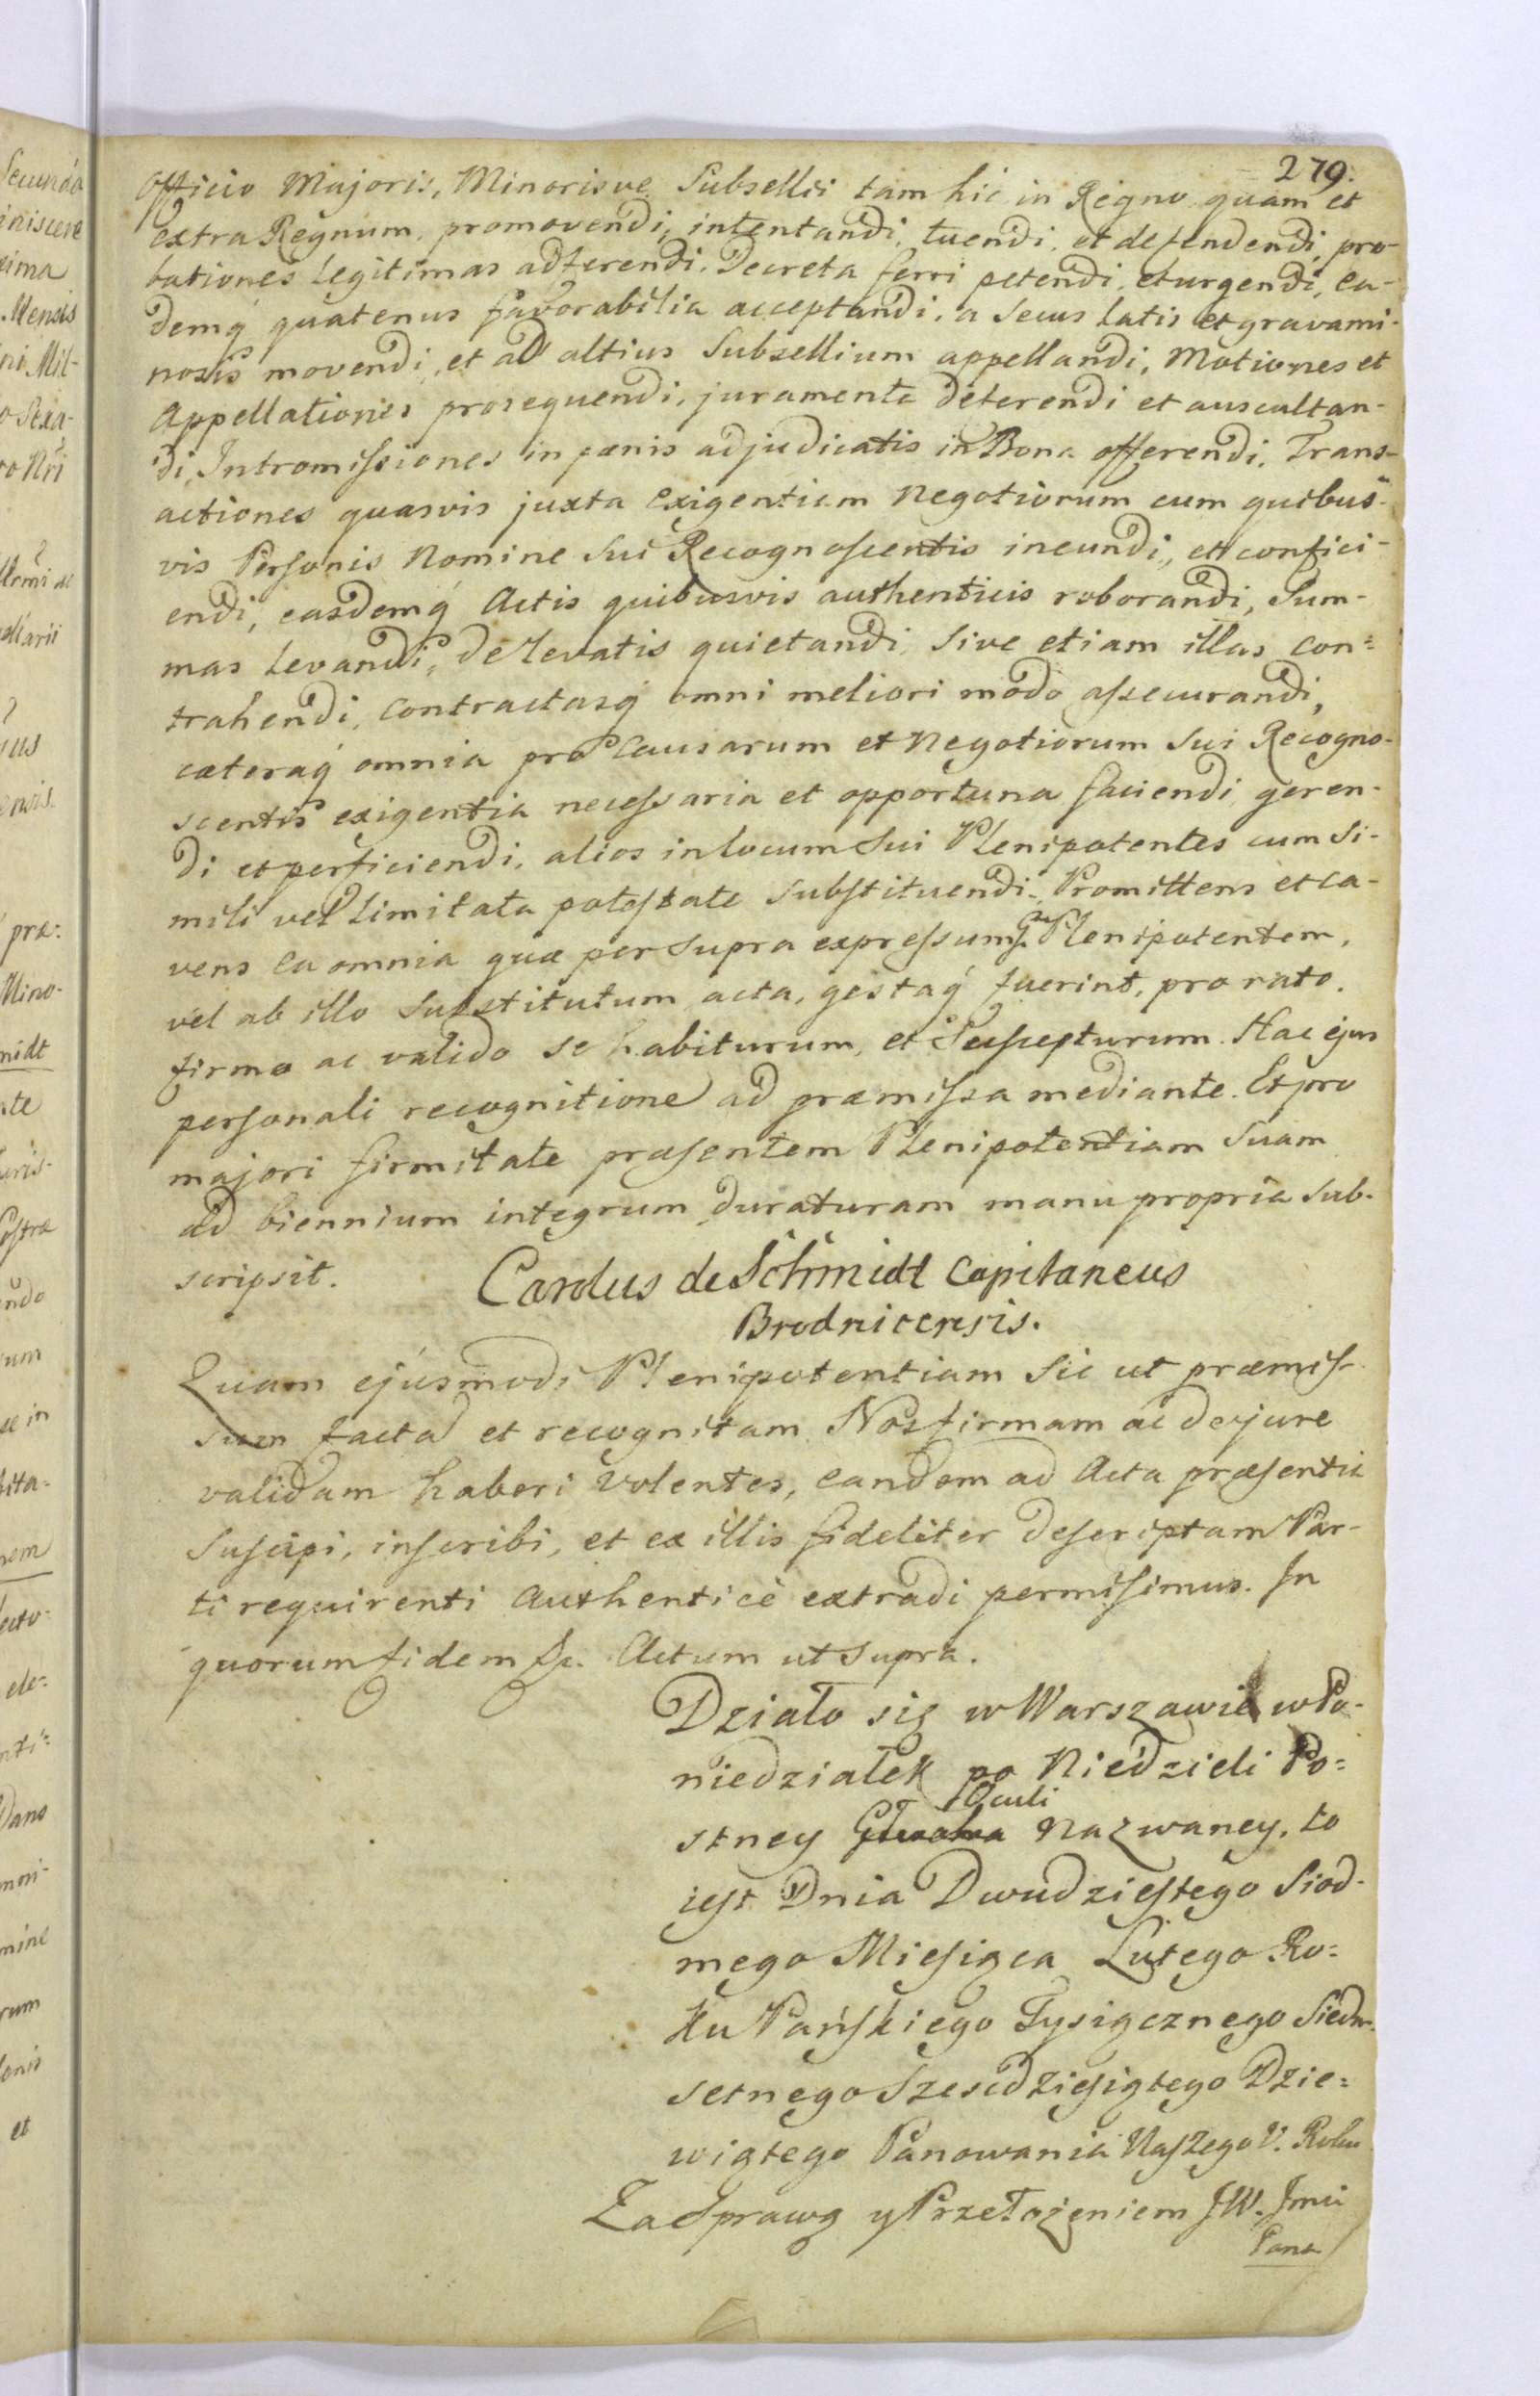 279.
Officio Majoris, Minorisve Subsellii tam hic in Regno quam et
extra Regnum, promovendi, intentandi, tuendi, et defendendi, pro-
bationes Legitimas adferendi, Decreta ferri petendi, et urgendi, ea-
demq́ quatenus favorabilia acceptandi, a secus Latis et gravami-
nosis movendi, et ad altius Subsellium appellandi, Motiones et
Appellationes prosequendi, juramenta deferendi et auscultan-
di, Intromissiones in pœnis adjudicatis in Bona offerendi, Trans-
actiones quasvis juxta exigentiam Negotiorum cum quibus-
vis Personis Nomine Sui Recognoscentis ineundi, et confici-
endi, easdemq́ Actis quibusvis authenticis roborandi, Sum-
mas Levandi, de Levatis quietandi, Sive etiam illas con=
trahendi, contractasq́ omni meliori modo assecurandi,
cæteraq́ omnia pro Causarum et Negotiorum Sui Recogno-
scentis exigentia necessaria et opportuna faciendi, geren-
di et perficiendi, alios in locum Sui Plenipotentes cum Si-
mili vel Limitata potestate substituendi. Promittens et ca-
vens ea omnia quæ per supra expressum Gsm Plenipotentem,
vel ab illo Substitutum acta, gestaq́ fuerint, pro rato,
firmo ac valido se habiturum, et Suscepturum. Hac ejus
personali recognitione ad præmissa mediante. Et pro
majori firmitate præsentem Plenipotentiam Suam
ad biennium integrum duraturam manu propria sub-
scripsit. Carolus de Schmidt Capitaneus
Brodnicensis.
Quam ejusmodi Plenipotentiam Sic ut præmis-
sum facta et recognitam Nos firmam ac de jure
validam haberi volentes, eandem ad Acta præsentia
Suscipi, inscribi, et ex illis fideliter descriptam Par-
ti requirenti Authenticè extradi permisimus. In
quorum fidem &c. Actum ut supra.
Działo się w Warszawie w Po-
niedziałek po Niedzieli Po=
Oculi
stney Głucha Nazwaney, to
iest Dnia Dwudziestego Siod-
mego Miesiąca Lutego Ro=
ku Pańskiego Tysiącznego Siedm-
setnego Szescdziesiątego Dzie=
wiątego Panowania Naszego V. Roku
Za Sprawą y Przełożeniem JW. Jmci
Pana